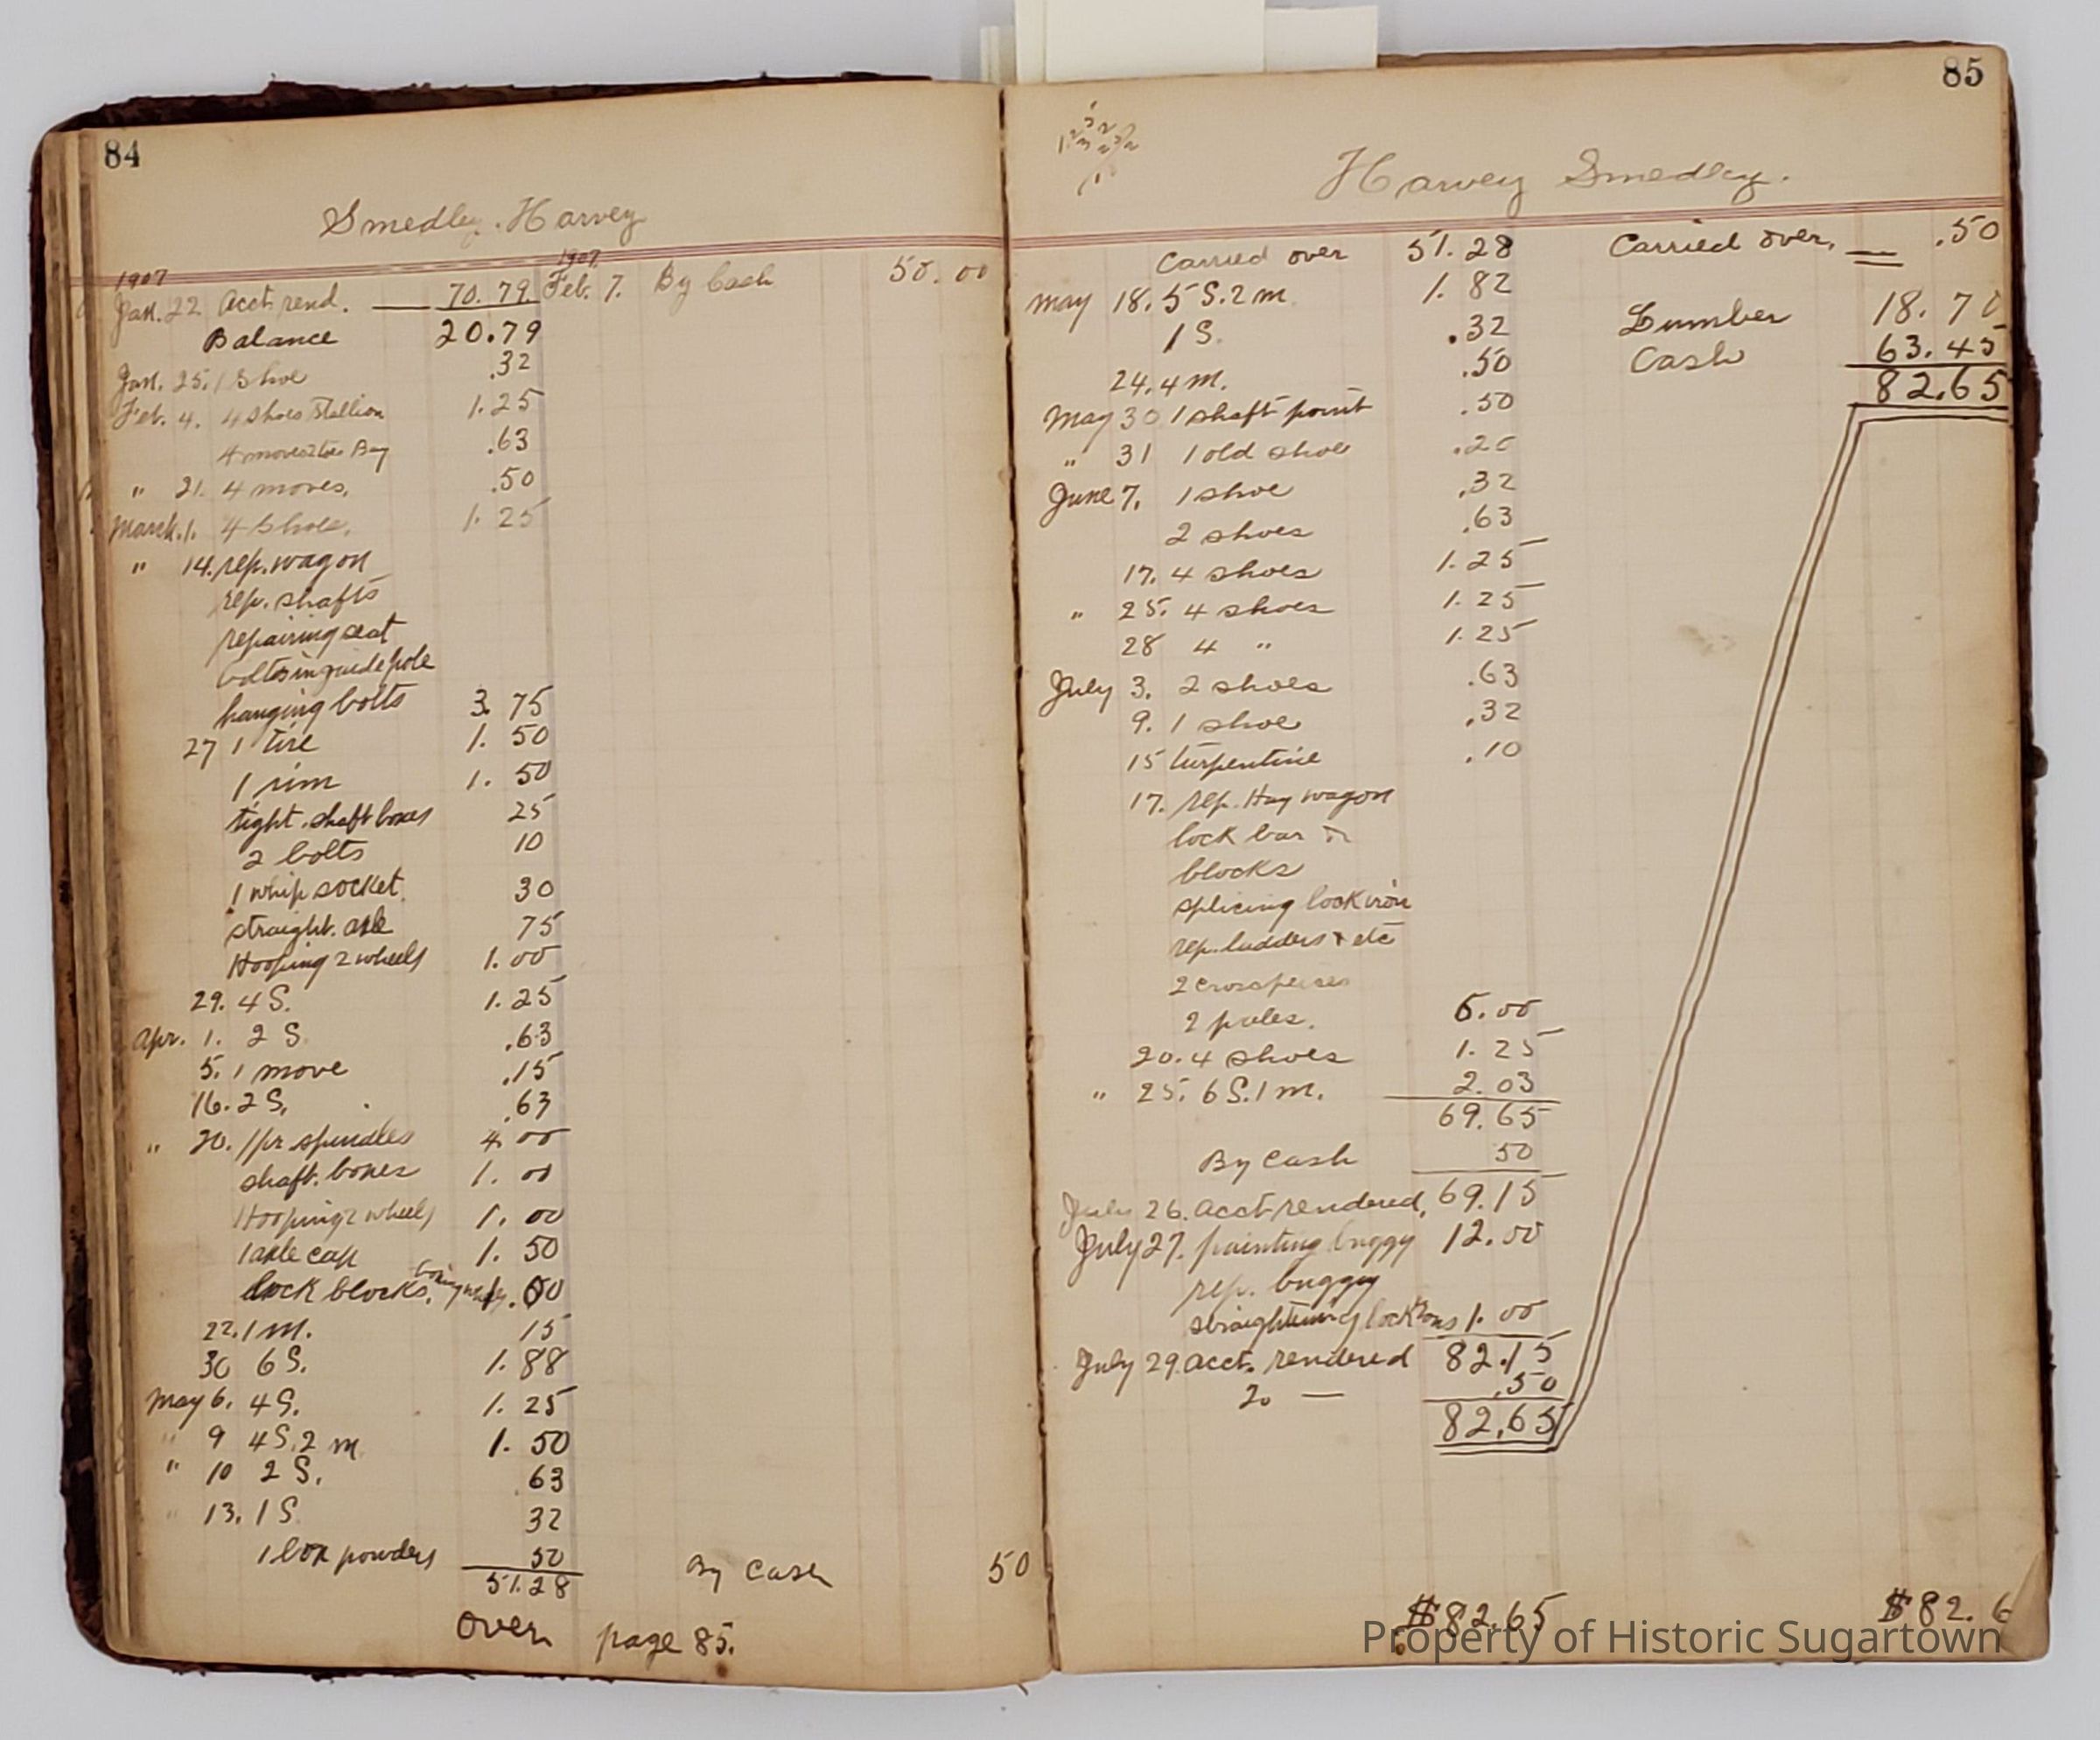 84
Smedley. Harvey
1907 1907
Jan. 22. Acct. rend. 70.79. Feb. 7. By Cash 50.00
Balance 20.79
Jan. 25. 1 Shoe .32
Feb. 4. 4 Shoes Stallion 1.25
4 moves 2 toes Bay .63
" 21. 4 moves. .50
March. 1. 4 Shoes. 1.25
" 14. rep. wagon
rep. shafts
repairing seat
bolts in guide pole
hanging bolts 3.75
27 1 tire 1.50
1 rim 1.50
tight. shaft boxes 25
2 bolts 10
1 whip socket. 30
straight. axle 75
Hooping 2 wheels 1.00
29. 4 S. 1.25
Apr. 1. 2 S. .63
5. 1 move .15
16. 2 S. .63
" 20. 1 pr. spindles 4.00
shaft. boxes 1.00
Hooping 2 wheels 1.00
1 axle cap 1.50
lock blocks. .00
22. 1 m. 15
30 6 S. 1.88
May 6. 4 S. 1.25
" 9 4 S. 2 m. 1.50
" 10 2 S. 63
" 13. 1 S. 32
1 box powders 50
51.28 By Cash 50
Over page 85.
85
Harvey Smedley.
Carried over 51.28 Carried over. .50
May 18. 5 S. 2 m. 1.82
1 S. .32 Lumber 18.70
24. 4 m. .50 Cash 63.45
82.65
May 30 1 shaft point .50
" 31 1 old shoe .20
June 7. 1 shoe .32
2 shoes .63
17. 4 shoes 1.25
" 25. 4 shoes 1.25
28 4 " 1.25
July 3. 2 shoes .63
9. 1 shoe .32
15 turpentine .10
17. rep. Hay wagon
lock bar &
blocks
splicing lock iron
rep. ladders & etc
2 crosspeices
2 poles. 6.00
20. 4 shoes 1.25
" 25. 6 S. 1 m. 2.03
69.65
By Cash 50
July 26. Acct. rendered. 69.15
July 27. painting buggy 12.00
rep. buggy
straightening lock irons 1.00
July 29. Acct. rendered 82.15
.50
82.65
$82.65 $82.6
Property of Historic Sugartown